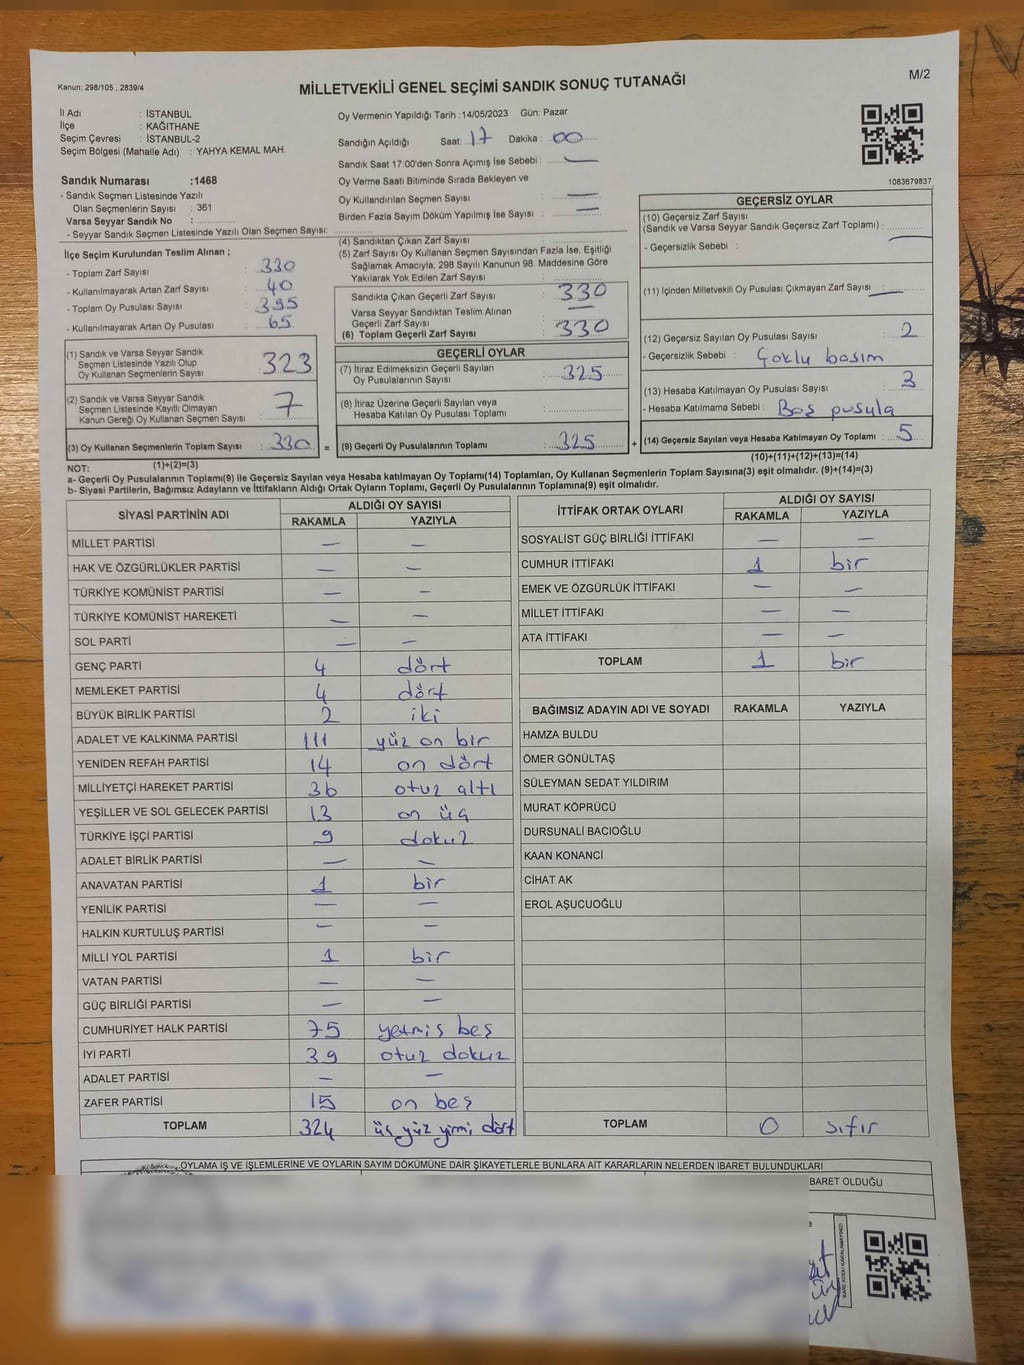 Kanun: 298/105 , 2839/4
MİLLETVEKİLİ GENEL SEÇİMİ SANDIK SONUÇ TUTANAĞI
M/2
İl Adı : İSTANBUL
İlçe : KAĞITHANE
Seçim Çevresi : İSTANBUL-2
Seçim Bölgesi (Mahalle Adı) : YAHYA KEMAL MAH.
Oy Vermenin Yapıldığı Tarih :14/05/2023 Gün: Pazar
Sandığın Açıldığı Saat: 17 Dakika : 00
Sandık Saat 17:00'den Sonra Açımış İse Sebebi : —
Oy Verme Saati Bitiminde Sırada Bekleyen ve
Oy Kullandırılan Seçmen Sayısı : —
Birden Fazla Sayım Döküm Yapılmış İse Sayısı : —
1083679837
Sandık Numarası :1468
- Sandık Seçmen Listesinde Yazılı
Olan Seçmenlerin Sayısı : 361
Varsa Seyyar Sandık No :
- Seyyar Sandık Seçmen Listesinde Yazılı Olan Seçmen Sayısı:
İlçe Seçim Kurulundan Teslim Alınan ;
- Toplam Zarf Sayısı : 330
- Kullanılmayarak Artan Zarf Sayısı : 40
- Toplam Oy Pusulası Sayısı : 395
- Kullanılmayarak Artan Oy Pusulası : 65
(1) Sandık ve Varsa Seyyar Sandık
Seçmen Listesinde Yazılı Olup
Oy Kullanan Seçmenlerin Sayısı : 323
(2) Sandık ve Varsa Seyyar Sandık
Seçmen Listesinde Kayıtlı Olmayan
Kanun Gereği Oy Kullanan Seçmen Sayısı : 7
(3) Oy Kullanan Seçmenlerin Toplam Sayısı : 330
(1)+(2)=(3)
(4) Sandıktan Çıkan Zarf Sayısı :
(5) Zarf Sayısı Oy Kullanan Seçmen Sayısından Fazla İse, Eşitliği
Sağlamak Amacıyla, 298 Sayılı Kanunun 98. Maddesine Göre
Yakılarak Yok Edilen Zarf Sayısı :
Sandıkta Çıkan Geçerli Zarf Sayısı : 330
Varsa Seyyar Sandıktan Teslim Alınan
Geçerli Zarf Sayısı : —
(6) Toplam Geçerli Zarf Sayısı : 330
GEÇERLİ OYLAR
(7) İtiraz Edilmeksizin Geçerli Sayılan
Oy Pusulalarının Sayısı : 325
(8) İtiraz Üzerine Geçerli Sayılan veya
Hesaba Katılan Oy Pusulası Toplamı :
= (9) Geçerli Oy Pusulalarının Toplamı : 325 +
GEÇERSİZ OYLAR
(10) Geçersiz Zarf Sayısı
(Sandık ve Varsa Seyyar Sandık Geçersiz Zarf Toplamı) :
- Geçersizlik Sebebi : —
(11) İçinden Milletvekili Oy Pusulası Çıkmayan Zarf Sayısı : —
(12) Geçersiz Sayılan Oy Pusulası Sayısı : 2
- Geçersizlik Sebebi : Çoklu basım
(13) Hesaba Katılmayan Oy Pusulası Sayısı : 3
- Hesaba Katılmama Sebebi : Boş pusula
(14) Geçersiz Sayılan veya Hesaba Katılmayan Oy Toplamı : 5
(10)+(11)+(12)+(13)=(14)
NOT:
a- Geçerli Oy Pusulalarının Toplamı(9) ile Geçersiz Sayılan veya Hesaba katılmayan Oy Toplamı(14) Toplamları, Oy Kullanan Seçmenlerin Toplam Sayısına(3) eşit olmalıdır. (9)+(14)=(3)
b- Siyasi Partilerin, Bağımsız Adayların ve İttifakların Aldığı Ortak Oyların Toplamı, Geçerli Oy Pusulalarının Toplamına(9) eşit olmalıdır.
SİYASİ PARTİNİN ADI ALDIĞI OY SAYISI
RAKAMLA YAZIYLA
MİLLET PARTİSİ — —
HAK VE ÖZGÜRLÜKLER PARTİSİ — —
TÜRKİYE KOMÜNİST PARTİSİ — —
TÜRKİYE KOMÜNİST HAREKETİ — —
SOL PARTİ — —
GENÇ PARTİ 4 dört
MEMLEKET PARTİSİ 4 dört
BÜYÜK BİRLİK PARTİSİ 2 iki
ADALET VE KALKINMA PARTİSİ 111 yüz on bir
YENİDEN REFAH PARTİSİ 14 on dört
MİLLİYETÇİ HAREKET PARTİSİ 36 otuz altı
YEŞİLLER VE SOL GELECEK PARTİSİ 13 on üç
TÜRKİYE İŞÇİ PARTİSİ 9 dokuz
ADALET BİRLİK PARTİSİ — —
ANAVATAN PARTİSİ 1 bir
YENİLİK PARTİSİ — —
HALKIN KURTULUŞ PARTİSİ — —
MİLLİ YOL PARTİSİ 1 bir
VATAN PARTİSİ — —
GÜÇ BİRLİĞİ PARTİSİ — —
CUMHURİYET HALK PARTİSİ 75 yetmiş beş
İYİ PARTİ 39 otuz dokuz
ADALET PARTİSİ — —
ZAFER PARTİSİ 15 on beş
TOPLAM 324 üç yüz yirmi dört
İTTİFAK ORTAK OYLARI ALDIĞI OY SAYISI
RAKAMLA YAZIYLA
SOSYALİST GÜÇ BİRLİĞİ İTTİFAKI — —
CUMHUR İTTİFAKI 1 bir
EMEK VE ÖZGÜRLÜK İTTİFAKI — —
MİLLET İTTİFAKI — —
ATA İTTİFAKI — —
TOPLAM 1 bir
BAĞIMSIZ ADAYIN ADI VE SOYADI RAKAMLA YAZIYLA
HAMZA BULDU
ÖMER GÖNÜLTAŞ
SÜLEYMAN SEDAT YILDIRIM
MURAT KÖPRÜCÜ
DURSUNALİ BACIOĞLU
KAAN KONANCİ
CİHAT AK
EROL AŞUCUOĞLU
TOPLAM 0 sıfır
OYLAMA İŞ VE İŞLEMLERİNE VE OYLARIN SAYIM DÖKÜMÜNE DAİR ŞİKAYETLERLE BUNLARA AİT KARARLARIN NELERDEN İBARET BULUNDUKLARI
BARET OLDUĞU
KARE KODU KARALAMAYINIZ!